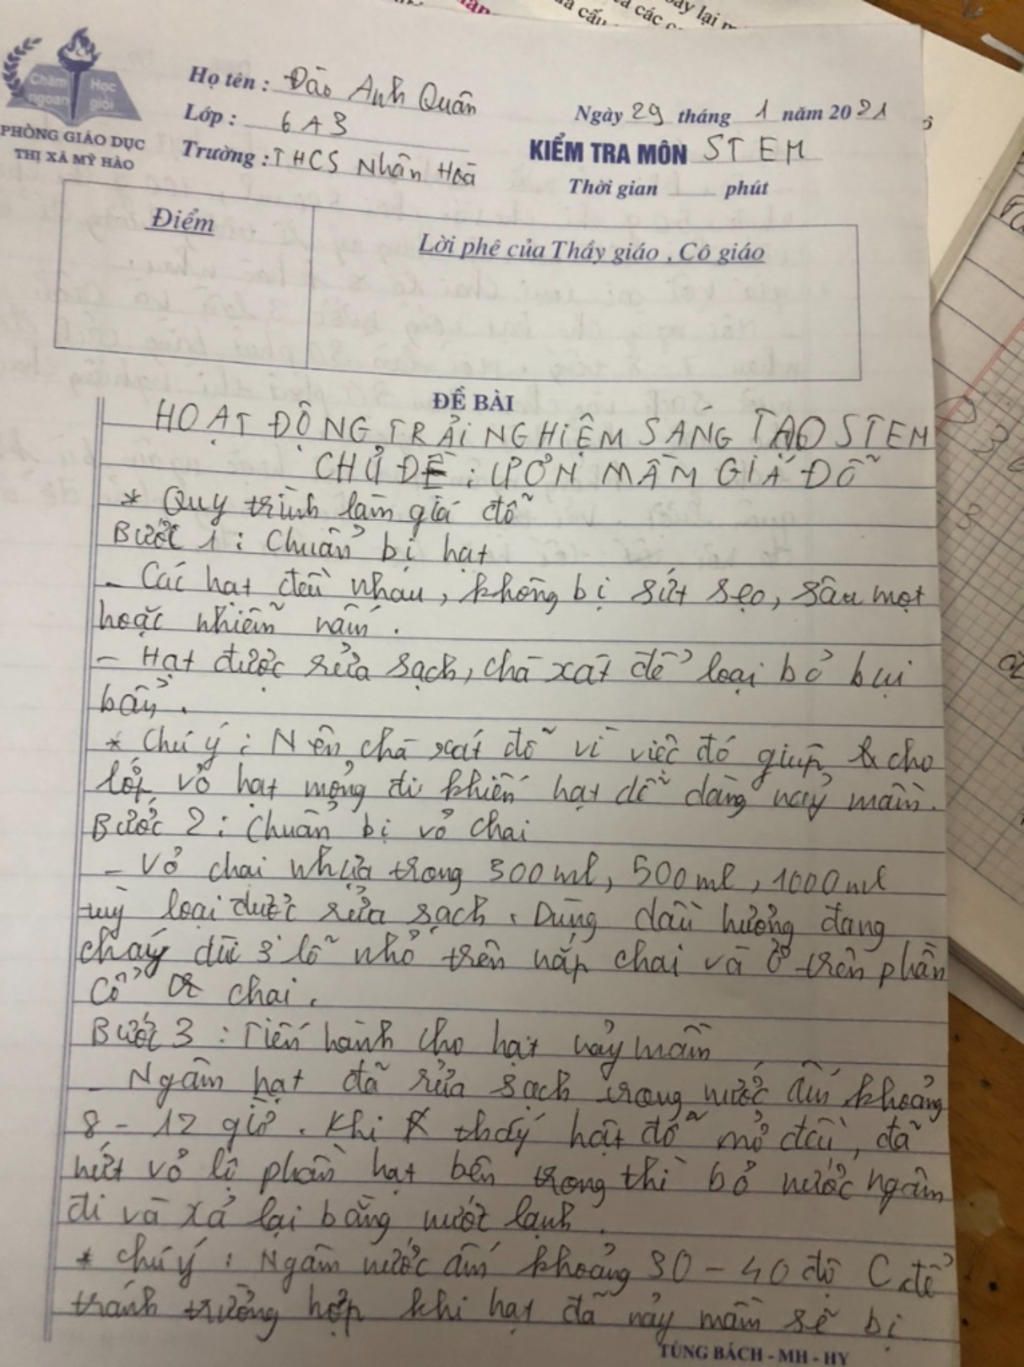 Chăm ngoan Học giỏi
PHÒNG GIÁO DỤC
THỊ XÃ MỸ HÀO
Họ tên : Đào Anh Quân
Lớp : 6A3
Trường : THCS Nhân Hoà
Ngày 29 tháng 1 năm 2021
KIỂM TRA MÔN STEM
Thời gian phút
Điểm
Lời phê của Thầy giáo , Cô giáo
ĐỀ BÀI
HOẠT ĐỘNG TRẢI NGHIỆM SÁNG TẠO STEM
CHỦ ĐỀ : ƯƠN MẦM GIÁ ĐỖ
* Quy trình làm giá đỗ
Bước 1 : Chuẩn bị hạt
- Các hạt đều nhau, không bị sứt sẹo, sâu mọt
hoặc nhiễm nấm.
- Hạt được rửa sạch, chà xát để loại bỏ bụi
bẩn.
* Chú ý : Nên chà xát đỗ vì việc đó giúp cho
lớp vỏ hạt mỏng đi khiến hạt dễ dàng nảy mầm.
Bước 2 : Chuẩn bị vỏ chai
- Vỏ chai nhựa trong 300ml, 500ml, 1000ml
tuỳ loại được rửa sạch. Dùng đầu hương đang
cháy dùi 3 lỗ nhỏ trên nắp chai và ở trên phần
cổ chai.
Bước 3 : Tiến hành cho hạt nảy mầm
- Ngâm hạt đã rửa sạch trong nước ấm khoảng
8 - 12 giờ. Khi thấy hạt đỗ mở đầu, đã
nứt vỏ lộ phần hạt bên trong thì bỏ nước ngâm
đi và xả lại bằng nước lạnh.
* Chú ý : Ngâm nước ấm khoảng 30 - 40 độ C để
tránh trường hợp khi hạt đã nảy mầm sẽ bị
TÙNG BÁCH - MH - HY